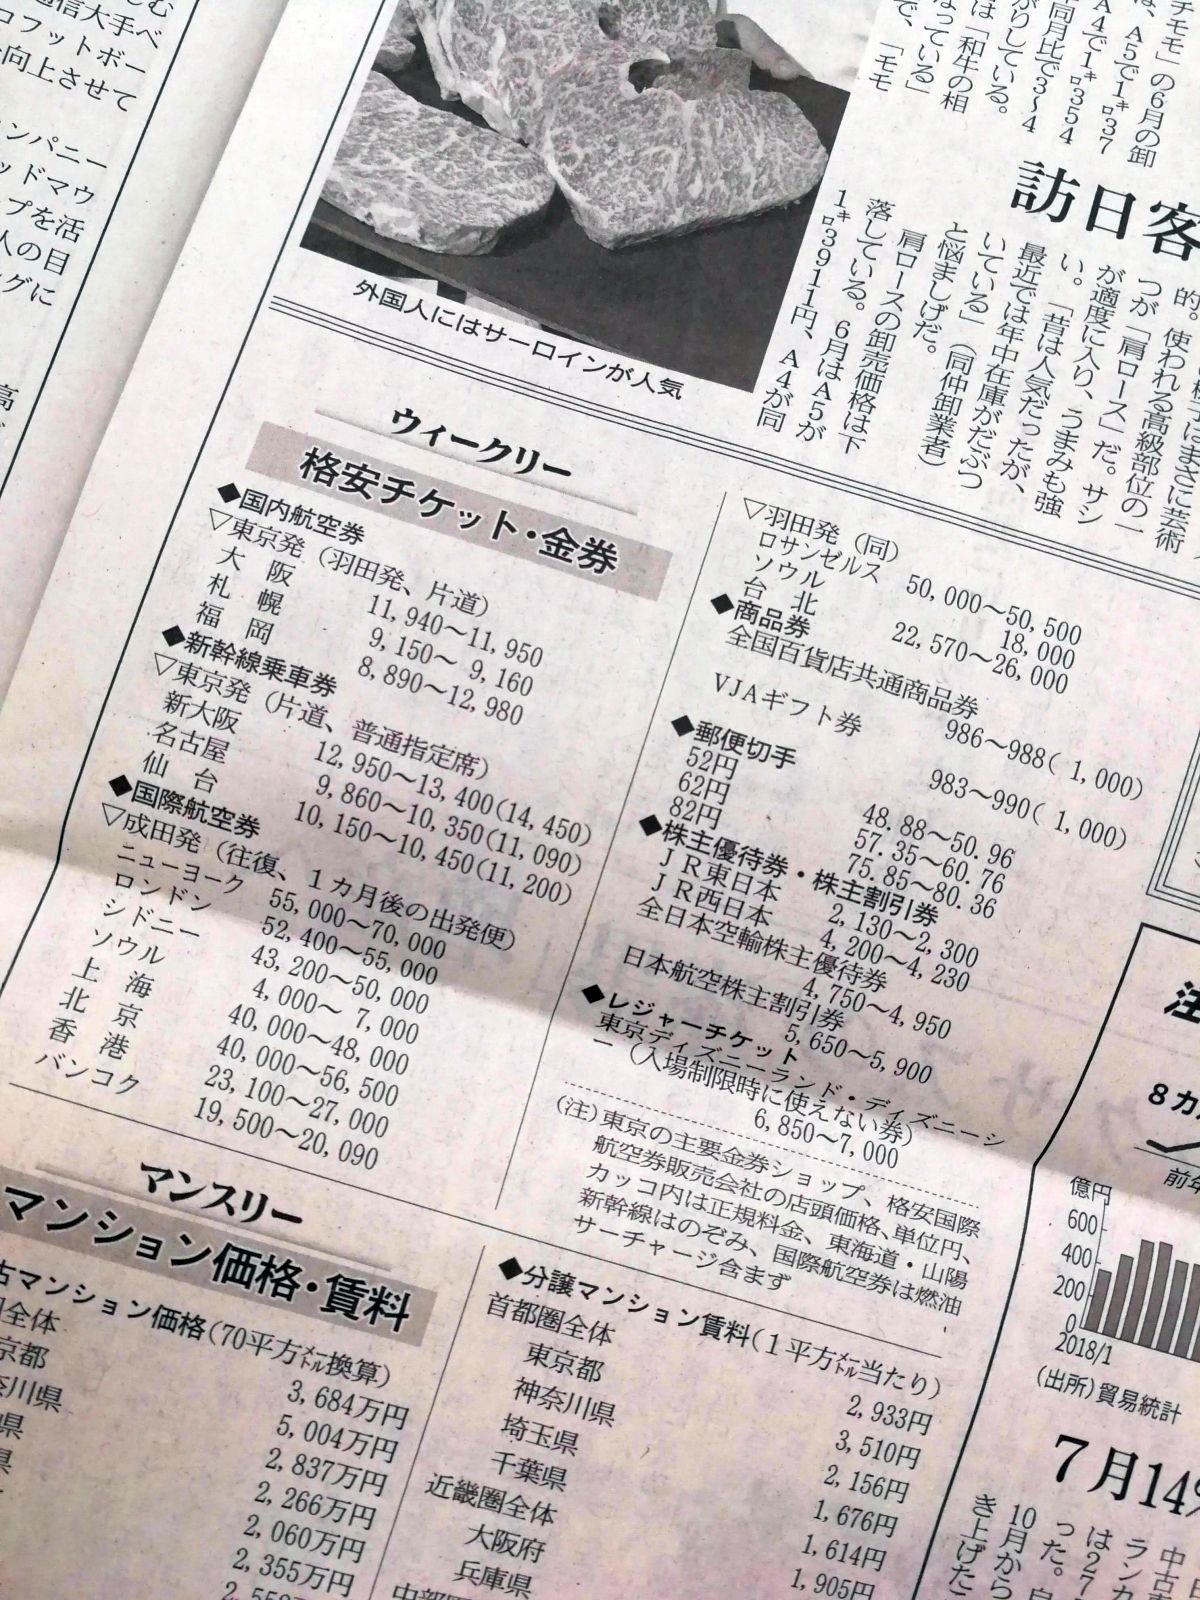 む
通信大手ベ
ロフットボー
向上させて
ンパニー
ッドマウ
プを活
人の目
グに
高
チモモ」の6月の卸
は、A5で1㌔37
A4で1㌔354
同月比で3〜4
がりしている。
は「和牛の相
なっている」
で、「モモ
訪日客
的。使われる高級部位の一
つが「肩ロース」だ。サシ
が適度に入り、うまみも強
い。「昔は人気だったが、
最近では年中在庫がだぶつ
いている」(同仲卸業者)
と悩ましげだ。
肩ロースの卸売価格は下
落している。6月はA5が
1㌔3911円、A4が同
外国人にはサーロインが人気
ウィークリー
格安チケット・金券
◆国内航空券
▽東京発(羽田発、片道)
大阪 11,940〜11,950
札幌 9,150〜9,160
福岡 8,890〜12,980
◆新幹線乗車券
▽東京発(片道、普通指定席)
新大阪 12,950〜13,400(14,450)
名古屋 9,860〜10,350(11,090)
仙台 10,150〜10,450(11,200)
◆国際航空券
▽成田発(往復、1カ月後の出発便)
ニューヨーク 55,000〜70,000
ロンドン 52,400〜55,000
シドニー 43,200〜50,000
ソウル 4,000〜7,000
上海 40,000〜48,000
北京 40,000〜56,500
香港 23,100〜27,000
バンコク 19,500〜20,090
▽羽田発(同)
ロサンゼルス 50,000〜50,500
ソウル 18,000
台北 22,570〜26,000
◆商品券
全国百貨店共通商品券
986〜988(1,000)
VJAギフト券
983〜990(1,000)
◆郵便切手
52円 48.88〜50.96
62円 57.35〜60.76
82円 75.85〜80.36
◆株主優待券・株主割引券
JR東日本 2,130〜2,300
JR西日本 4,200〜4,230
全日本空輸株主優待券
4,750〜4,950
日本航空株主割引券
5,650〜5,900
◆レジャーチケット
東京ディズニーランド・ディズニーシ
ー(入場制限時に使えない券)
6,850〜7,000
(注)東京の主要金券ショップ、格安国際
航空券販売会社の店頭価格、単位円、
カッコ内は正規料金、東海道・山陽
新幹線はのぞみ、国際航空券は燃油
サーチャージ含まず
マンスリー
マンション価格・賃料
古マンション価格(70平方㍍換算)
圏全体 3,684万円
京都 5,004万円
奈川県 2,837万円
県 2,266万円
県 2,060万円
2,355万円
◆分譲マンション賃料(1平方㍍当たり)
首都圏全体 2,933円
東京都 3,510円
神奈川県 2,156円
埼玉県 1,676円
千葉県 1,614円
近畿圏全体 1,905円
大阪府
兵庫県
中部圏
注
8カ
前年
億円
600
400
200
0
2018/1
(出所)貿易統計
7月14%
中古
ランカ
は27
った。
10月から
き上げた